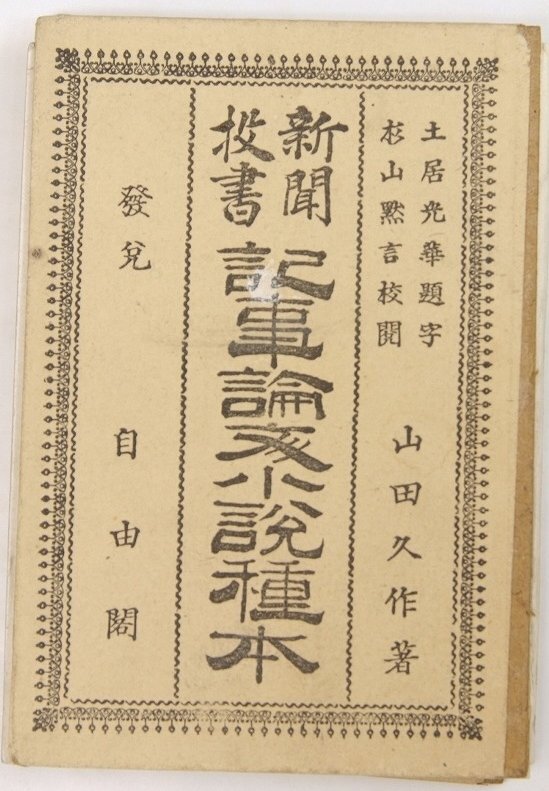 土居光華題字
杉山黙言校閱
山田久作著
新聞
投書
記事論文小說種本
發兌
自由閣